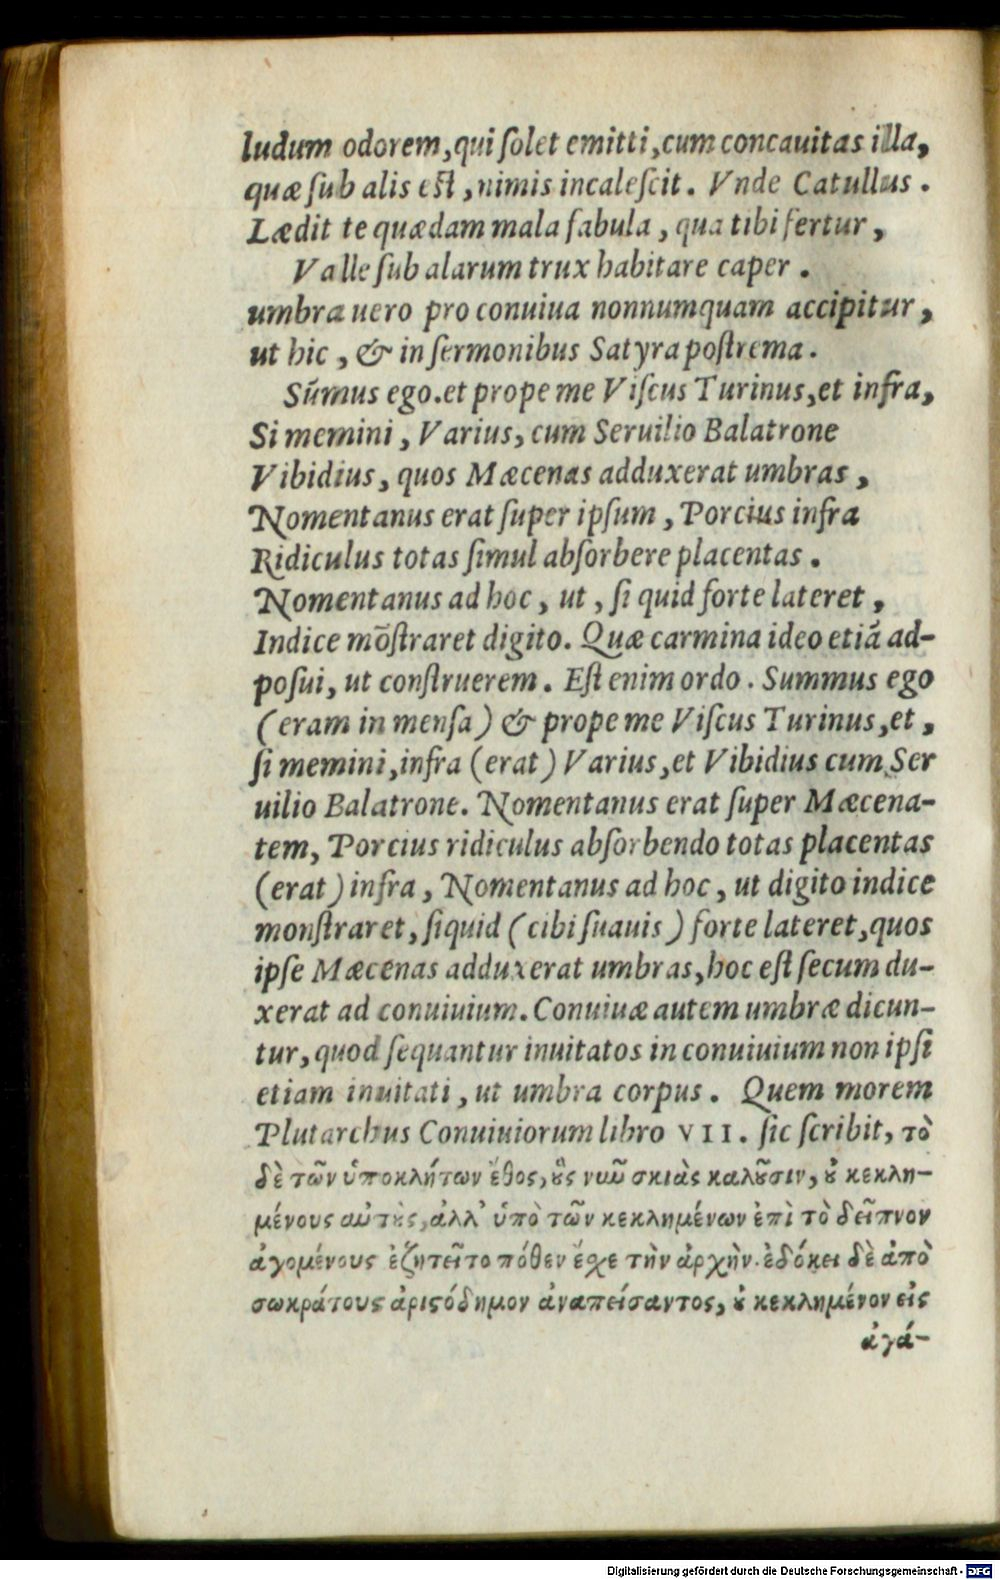 ludum odorem, qui ſolet emitti, cum concauitas illa,
quæ ſub alis eſt, nimis incaleſcit. Vnde Catullus.
Lædit te quædam mala fabula, qua tibi fertur,
Valle ſub alarum trux habitare caper.
umbra uero pro conuiua nonnumquam accipitur,
ut hic, & in ſermonibus Satyra poſtrema.
Sūmus ego.et prope me Viſcus Turinus,et infra,
Si memini, Varius, cum Seruilio Balatrone
Vibidius, quos Mæcenas adduxerat umbras,
Nomentanus erat ſuper ipſum, Porcius infra
Ridiculus totas ſimul abſorbere placentas.
Nomentanus ad hoc, ut, ſi quid forte lateret,
Indice mōſtraret digito. Quæ carmina ideo etiā ad-
poſui, ut conſtruerem. Eſt enim ordo. Summus ego
(eram in menſa) & prope me Viſcus Turinus,et,
ſi memini,infra (erat) Varius,et Vibidius cum Ser
uilio Balatrone. Nomentanus erat ſuper Mæcena-
tem, Porcius ridiculus abſorbendo totas placentas
(erat) infra, Nomentanus ad hoc, ut digito indice
monſtraret, ſiquid (cibi ſuauis) forte lateret,quos
ipſe Mæcenas adduxerat umbras,hoc eſt ſecum du-
xerat ad conuiuium. Conuiuæ autem umbræ dicun-
tur, quod ſequantur inuitatos in conuiuium non ipſi
etiam inuitati, ut umbra corpus. Quem morem
Plutarchus Conuiuiorum libro VII. ſic ſcribit, τὸ
δὲ τῶν ὑποκλήτων ἔθος, ȣ̓ς νυῦ σκιὰς καλȣ͂σιν, ȣ̓ κεκλη-
μένους αὐτȣ̀ς, ἀλλ' ὑπὸ τῶν κεκλημένων ἐπὶ τὸ δεῖπνον
ἀγομένους ἐζητεῖτο πόθεν ἔχε τὴν ἀρχὴν. ἐδόκει δὲ ἀπὸ
σωκράτους ἀριϛόδημον ἀναπείσαντος, ȣ̓ κεκλημένον εἰς
ἀγά-
Digitalisierung gefördert durch die Deutsche Forschungsgemeinschaft - DFG